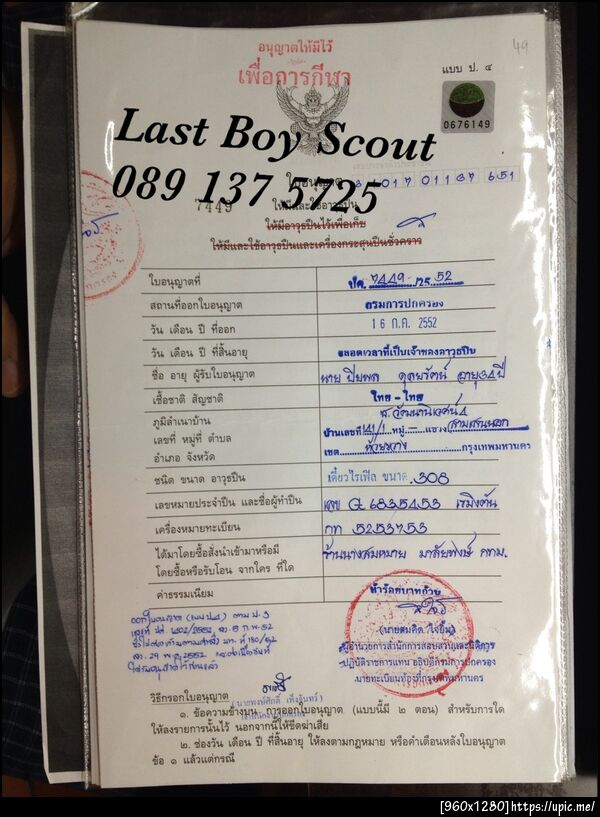 49
อนุญาตให้มีไว้
เพื่อการกีฬา
แบบ ป. ๔
0676149
Last Boy Scout
089 137 5725
ใบอนุญาต
7449
ให้มีและใช้อาวุธปืน
ให้มีอาวุธปืนไว้เพื่อเก็บ
ให้มีและใช้อาวุธปืนและเครื่องกระสุนปืนชั่วคราว
ใบอนุญาตที่ ปค. 7449 /25 52
สถานที่ออกใบอนุญาต กรมการปกครอง
วัน เดือน ปี ที่ออก 16 ก.ค. 2552
วัน เดือน ปี ที่สิ้นอายุ ตลอดเวลาที่เป็นเจ้าของอาวุธปืน
ชื่อ อายุ ผู้รับใบอนุญาต นาย ปิยพล ดุลยรัตน์ อายุ 34 ปี
เชื้อชาติ สัญชาติ ไทย - ไทย
ภูมิลำเนาบ้าน ส. วัฒนานิเวศน์ 4
เลขที่ หมู่ที่ ตำบล บ้านเลขที่ 141/1 หมู่ - แขวง สามเสนนอก
อำเภอ จังหวัด เขต ห้วยขวาง กรุงเทพมหานคร
ชนิด ขนาด อาวุธปืน เดี่ยวไรเฟิล ขนาด .308
เลขหมายประจำปืน และชื่อผู้ทำปืน เลข G 6835453 เรมิงตัน
เครื่องหมายทะเบียน กท 5253753
ได้มาโดยซื้อสั่งนำเข้ามาหรือมี ร้านนางสมหมาย มาลัยพงษ์ กทม.
โดยซื้อหรือรับโอน จากใคร ที่ใด
ค่าธรรมเนียม ห้าร้อยบาทถ้วน
(นายสมคิด ใจยิ้ม)
ผู้อำนวยการสำนักการสอบสวนและนิติการ
ปฏิบัติราชการแทน อธิบดีกรมการปกครอง
นายทะเบียนท้องที่กรุงเทพมหานคร
วิธีกรอกใบอนุญาต
๑. ข้อความข้างบน การออกใบอนุญาต (แบบนี้มี ๒ ตอน) สำหรับการใด
ให้ลงรายการนั้นไว้ นอกจากนี้ให้ขีดฆ่าเสีย
๒. ช่องวัน เดือน ปี ที่สิ้นอายุ ให้ลงตามกฎหมาย หรือคำเตือนหลังใบอนุญาต
ข้อ ๑ แล้วแต่กรณี
[960x1280]https://upic.me/